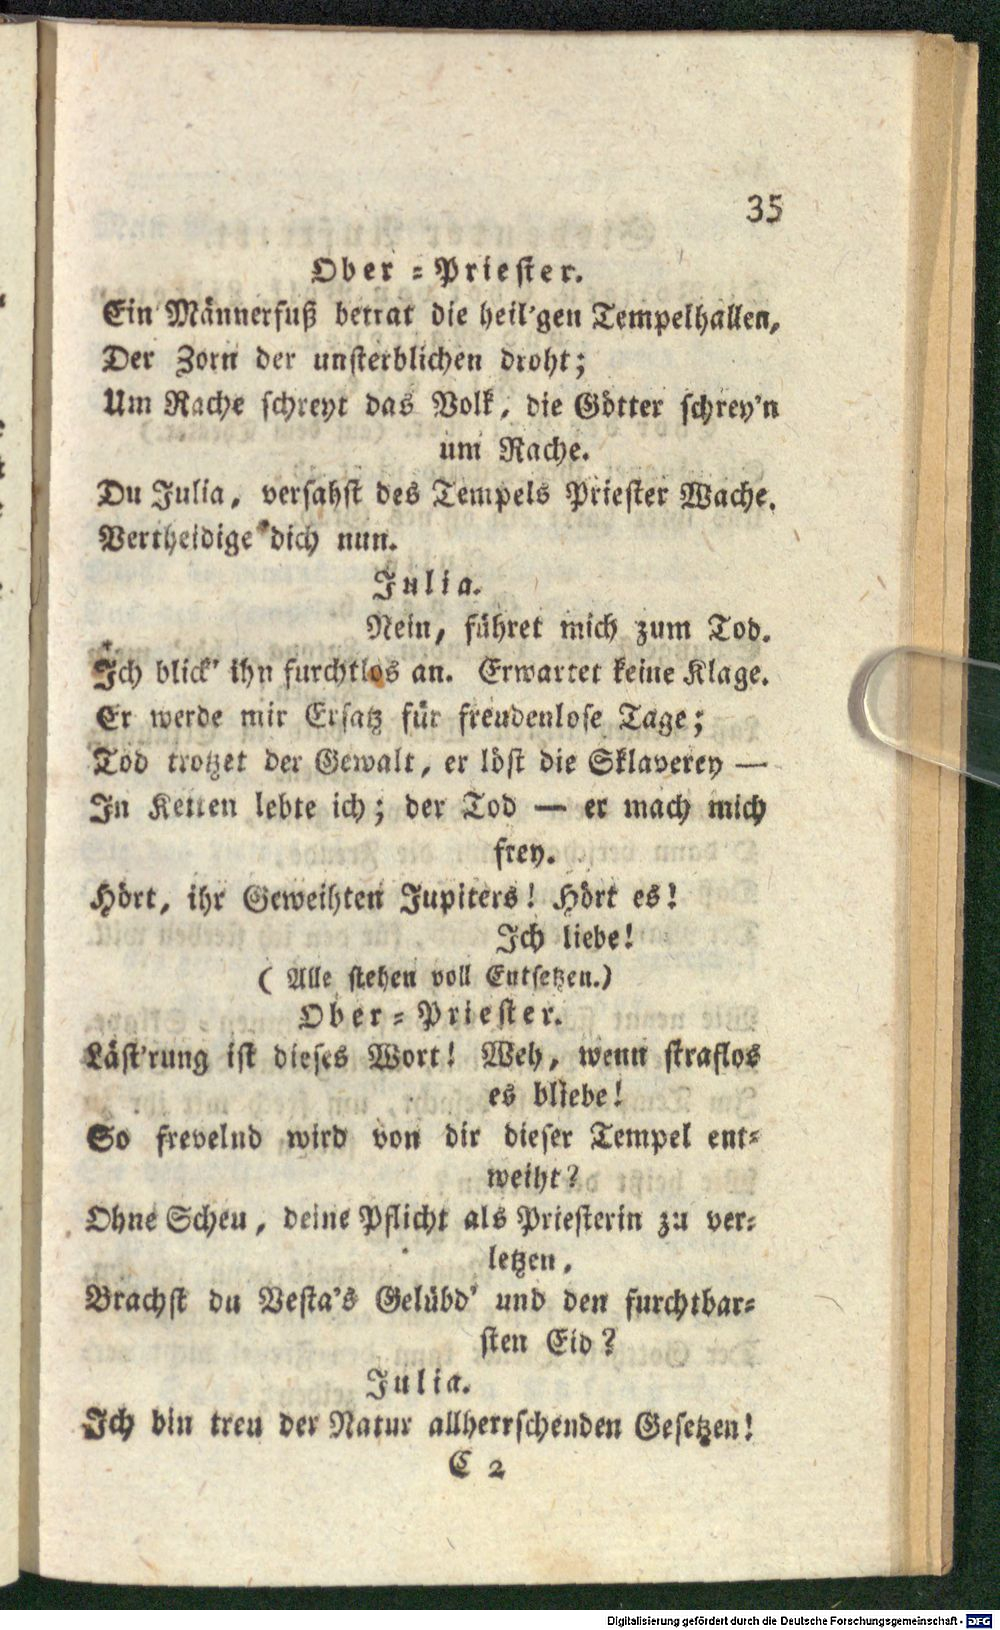 35
Ober-Priester.
Ein Männerfuß betrat die heil'gen Tempelhallen,
Der Zorn der unsterblichen droht;
Um Rache schreyt das Volk, die Götter schrey'n
um Rache.
Du Julia, versahst des Tempels Priester Wache.
Vertheidige dich nun.
Julia.
Nein, führet mich zum Tod.
Ich blick' ihn furchtlos an. Erwartet keine Klage.
Er werde mir Ersatz für freudenlose Tage;
Tod trotzet der Gewalt, er löst die Sklaverey —
In Ketten lebte ich; der Tod — er mach mich
frey.
Hört, ihr Geweihten Jupiters! Hört es!
Ich liebe!
( Alle stehen voll Entsetzen.)
Ober-Priester.
Läst'rung ist dieses Wort! Weh, wenn straflos
es bliebe!
So frevelnd wird von dir dieser Tempel ent-
weiht?
Ohne Scheu, deine Pflicht als Priesterin zu ver-
letzen,
Brachst du Vesta's Gelübd' und den furchtbar-
sten Eid?
Julia.
Ich bin treu der Natur allherrschenden Gesetzen!
C 2
Digitalisierung gefördert durch die Deutsche Forschungsgemeinschaft - DFG